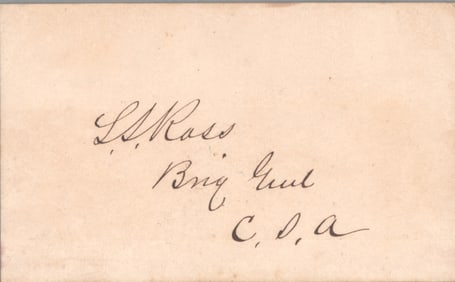 L.S. Ross
Brig Genl
C.S.A